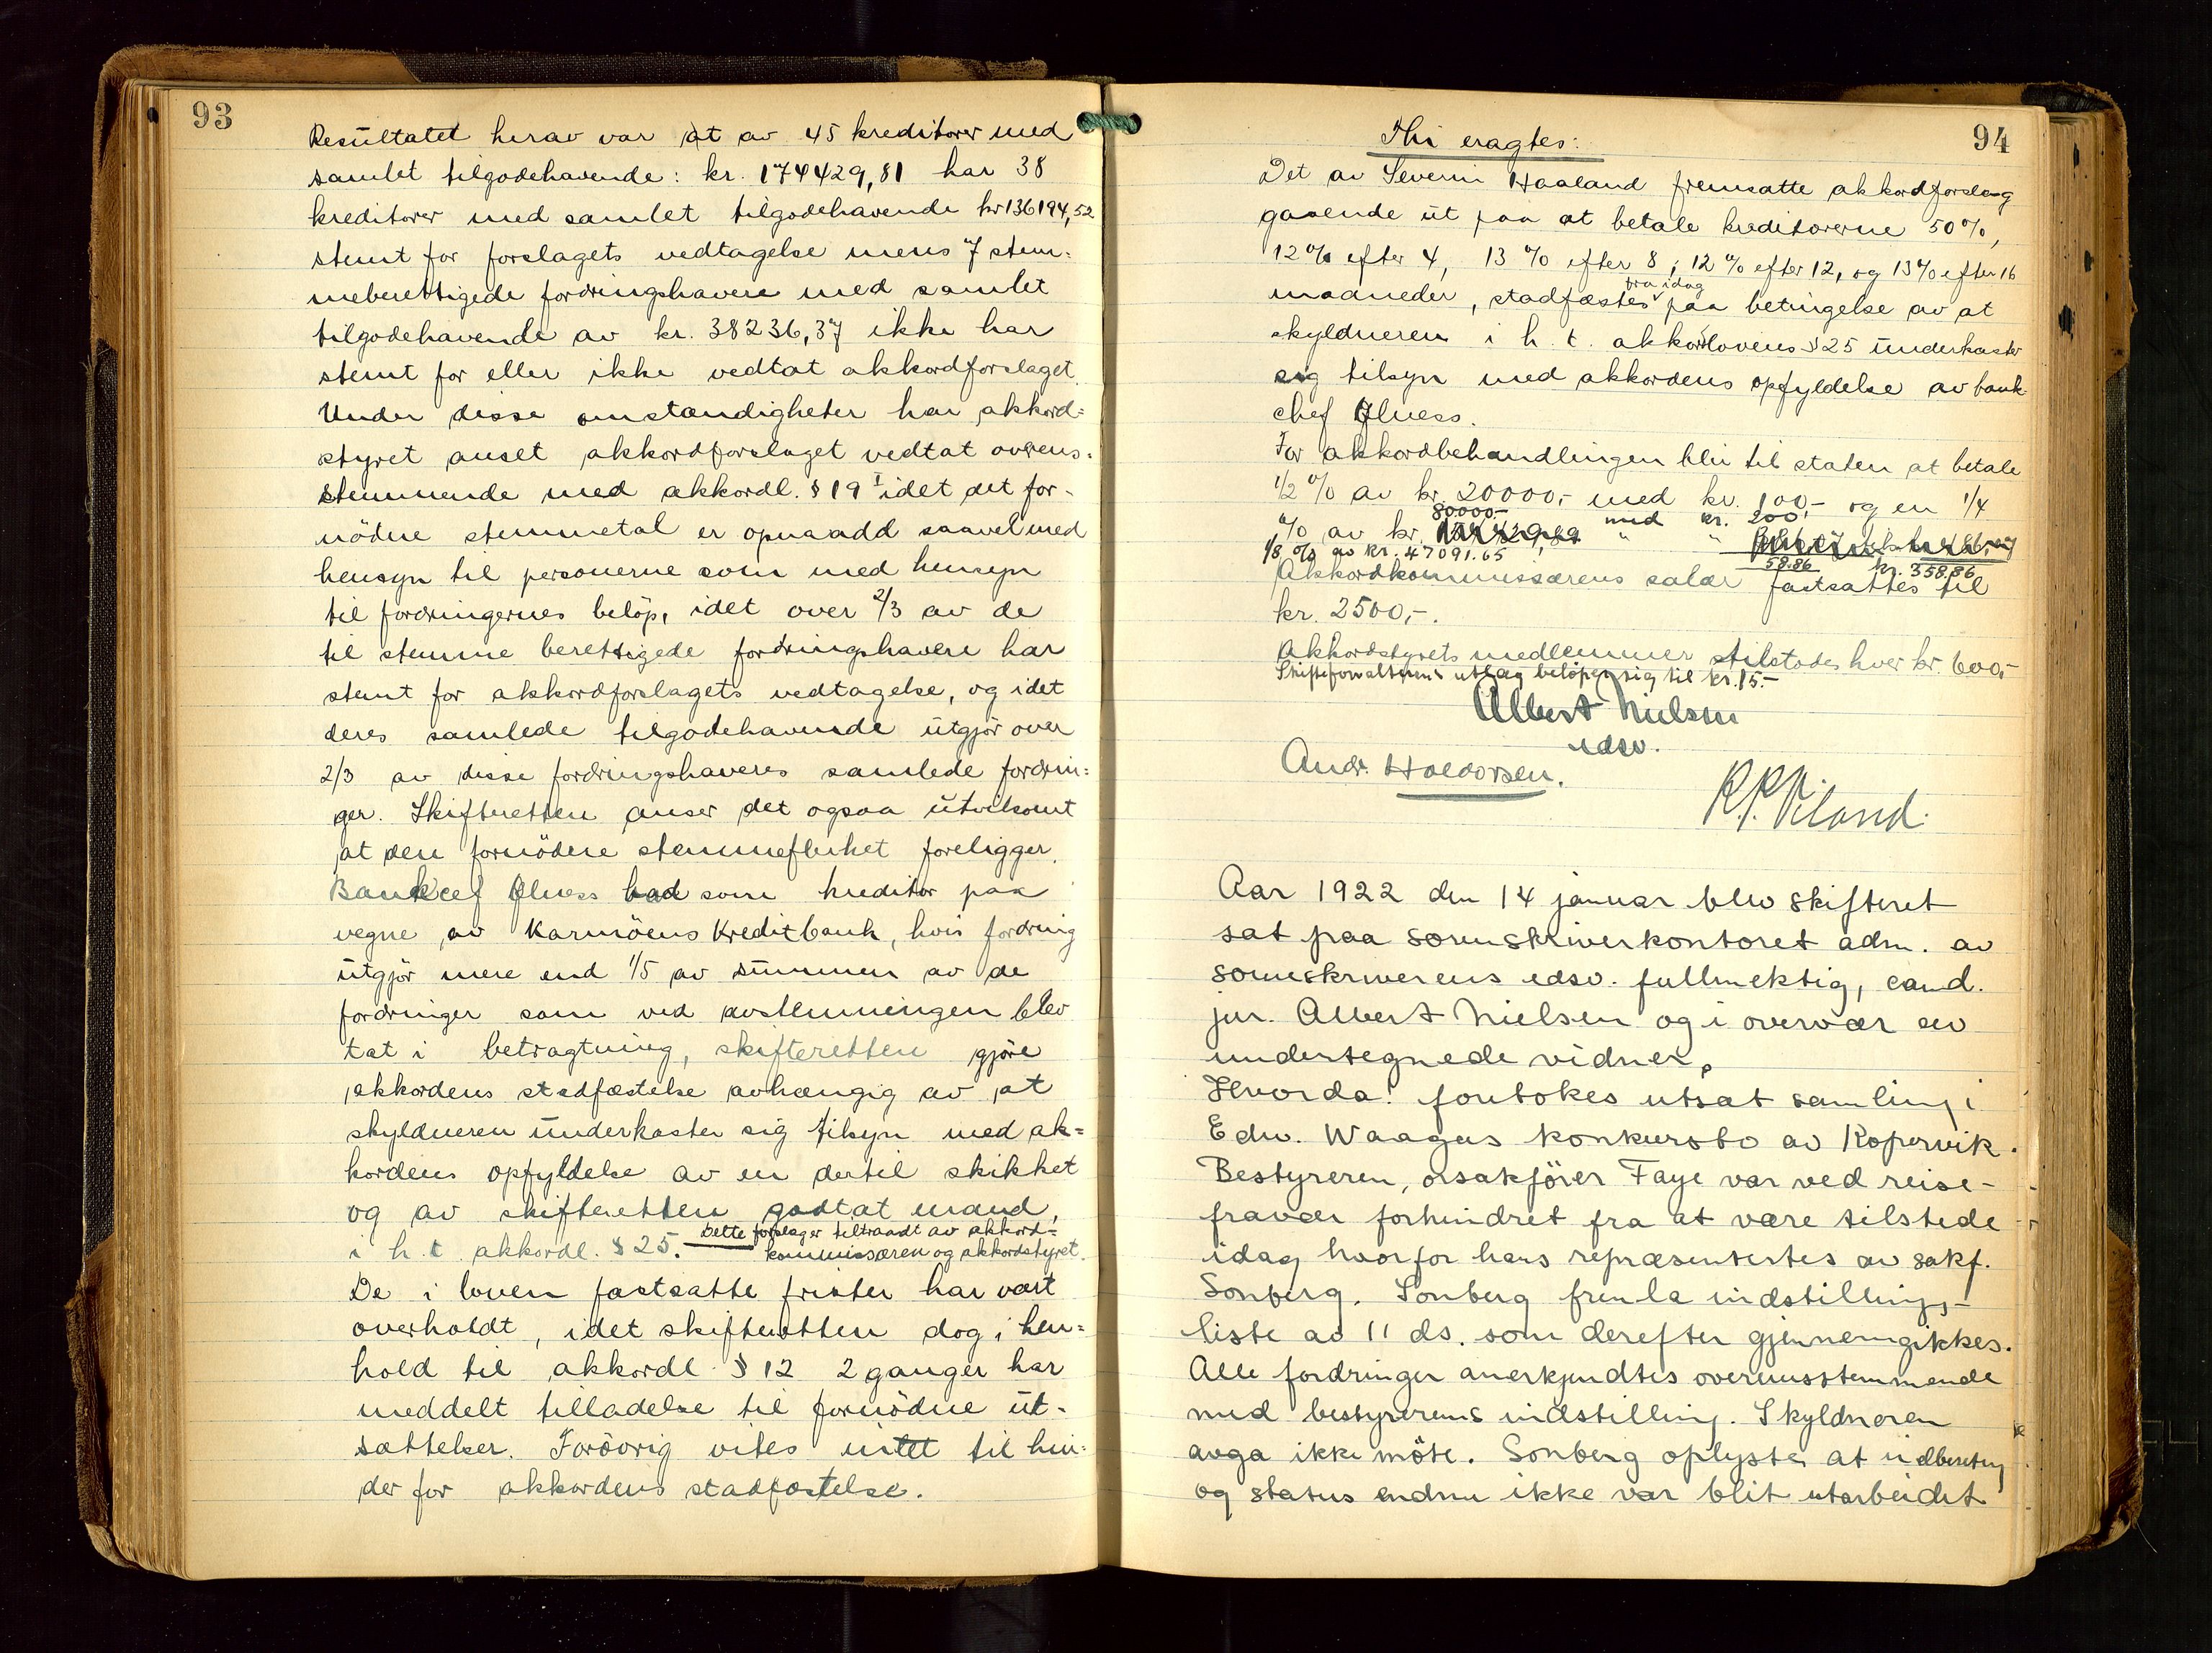 93
Resultatet herav var at av 45 kreditorer med
samlet tilgodehavende: kr. 174429,81 har 38
kreditorer med samlet tilgodehavende kr 136194,52
stemt for forslagets vedtagelse mens 7 stem=
meberettigede fordringshavere med samlet
tilgodehavende av kr. 38236,37 ikke har
stemt for eller ikke vedtat akkordforslaget.
Under disse omstændigheter har akkord=
styret anset akkordforslaget vedtat overens=
stemmende med akkordl. § 19 I idet det for-
nödne stemmetal er opnaadd saavel med
hensyn til personerne som med hensyn
til fordringernes belöp, idet over 2/3 av de
til stemme berettigede fordringshavere har
stemt for akkordforslagets vedtagelse, og idet
deres samlede tilgodehavende utgjör over
2/3 av disse fordringshaveres samlede fordrin=
ger. Skifteretten anser det ogsaa utvilsomt
at den fornödne stemmeflerhet foreligger.
Bankcef Ølness bad som kreditor paa
vegne av Karmöens Kreditbank, hvis fordring
utgjör mere end 1/5 av summen av de
fordringer som ved avstemningen blev
tat i betragtning, skifteretten gjöre
akkordens stadfæstelse avhængig av at
skyldneren underkaster sig tilsyn med ak=
kordens opfyldelse av en dertil skikket
og av skifteretten godtat mand,
i h. t. akkordl. § 25. Dette forslag er tiltraadt av akkord=
kommissæren og akkordstyret.
De i loven fastsatte frister har vært
overholdt, idet skifteretten dog i hen=
hold til akkordl. § 12 2 ganger har
meddelt tilladelse til fornödne ut-
sættelser. Foröovrig vites intet til hin=
der for akkordens stadfæstelse.
94
Thi eragtes:
Det av Severin Haaland fremsatte akkordforslag
gaaende ut paa at betale kreditorerne 50%,
12% efter 4, 13% efter 8, 12% efter 12, og 13% efter 16
fra idag
maaneder, stadfæstes paa betingelse av at
skyldneren i h. t. akkordlovens § 25 underkaster
sig tilsyn med akkordens opfyldelse av bank-
chef Ølness.
For akkordbehandlingen blir til staten at betale
1/2 % av kr. 20000,- med kr. 100,- og en 1/4
% av kr. 80000.- med kr. 200.
1/8 % av kr. 47091.65 " " 58.86 kr. 358.86
Akkordkommissærens salær fastsættes til
kr. 2500,-.
Akkordstyrets medlemmer tilstodes hver kr. 600,-
Skifteforvalterens utlæg belöper sig til kr. 15.-
Albert Nielsen
edsv.
Andr. Haldorsen.
Aar 1922 den 14 januar blev skifteret
sat paa sorenskriverkontoret adm. av
sorenskriverens edsv. fullmektig, cand.
jur. Albert Nielsen og i overvær av
undertegnede vidner.
Hvorda! foretokes utsat samling i
Edv. Waages konkursbo av Kopervik.
Bestyreren, orsakförer Faye var ved reise-
fravær forhindret fra at være tilstede
idag hvorfor hans repræsentertes av sakf.
Sonberg. Sonberg fremla indstillings-
liste av 11 ds. som derefter gjennemgikkes.
Alle fordringer anerkjendtes overensstemmende
med bestyrerens indstilling. Skyldneren
avga ikke möte. Sonberg oplyste at indberetng
og status endnu ikke var blit utarbeidet